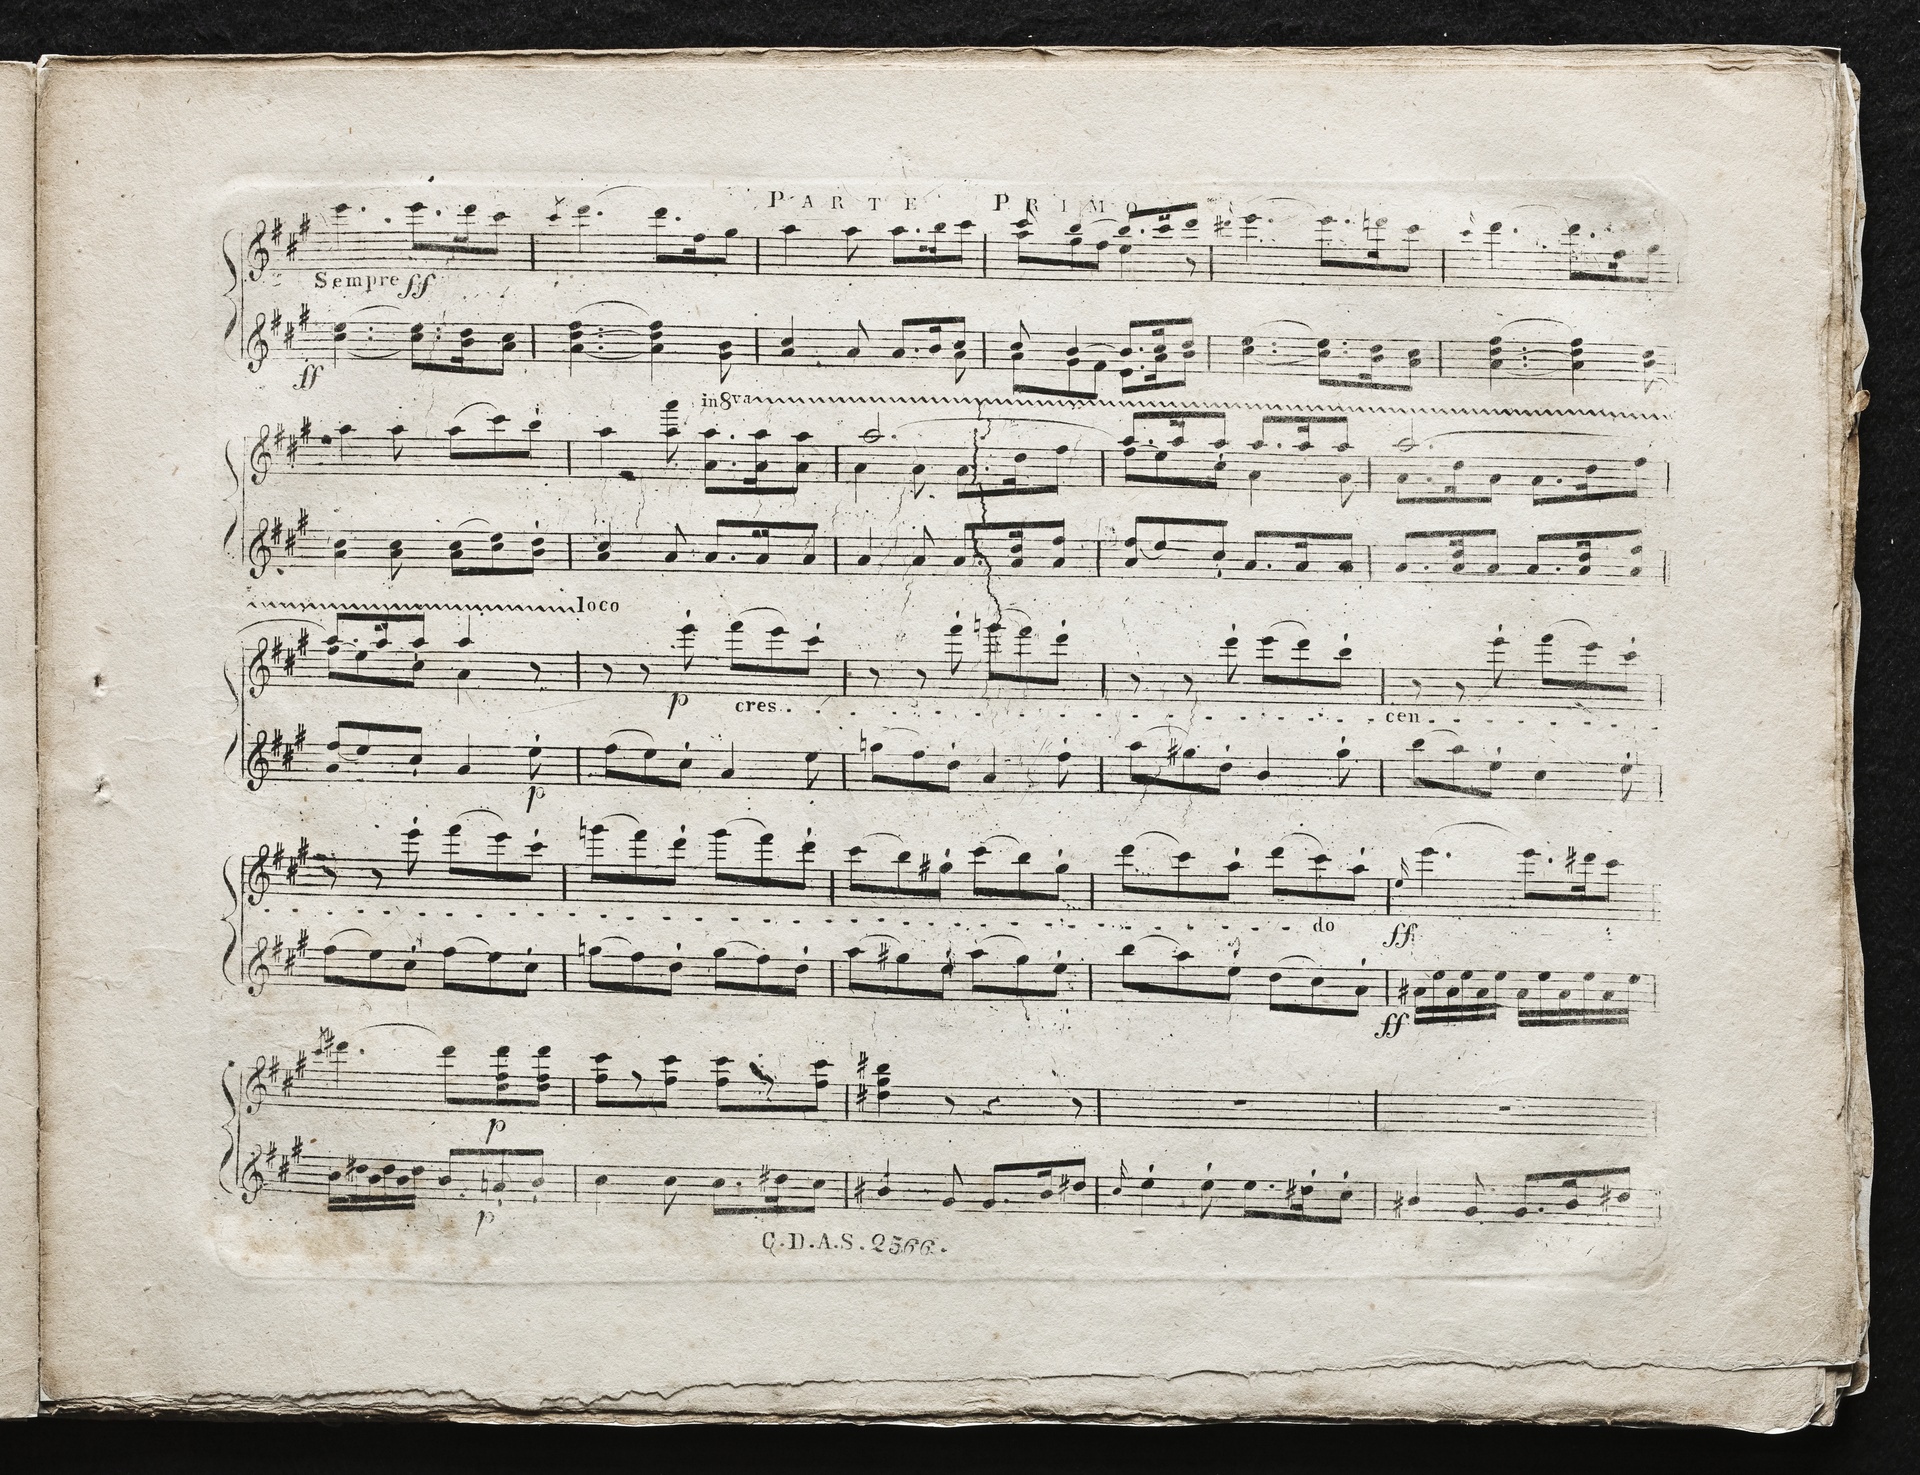 PARTE PRIMO
Sempre ff
ff
in8va
loco
p cres cen
p
do ff
ff
p
p
C.D.A.S. 2566.